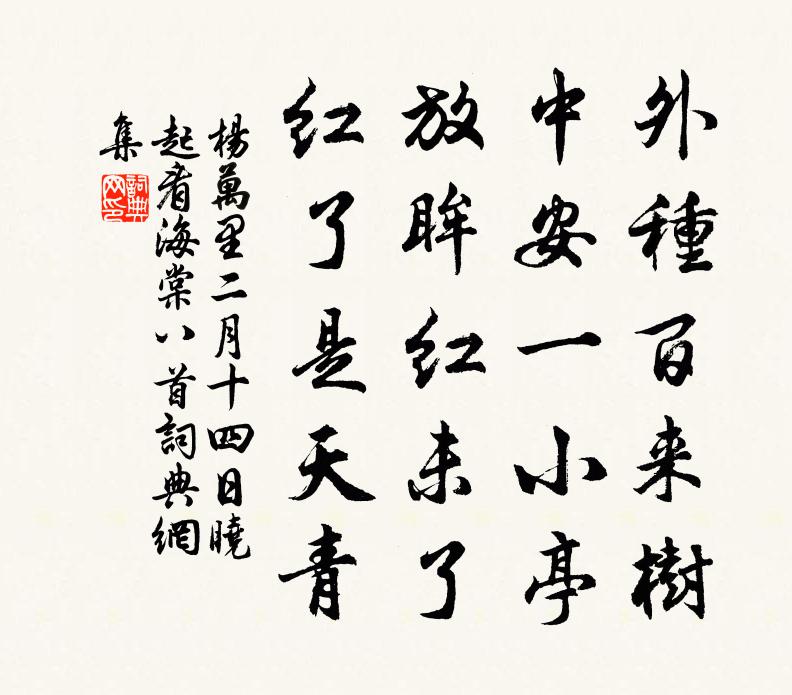 外種百来樹
中安一小亭
放眸紅未了
紅了是天青
楊萬里二月十四日曉
起看海棠八首詞典網
集
詞典
网印